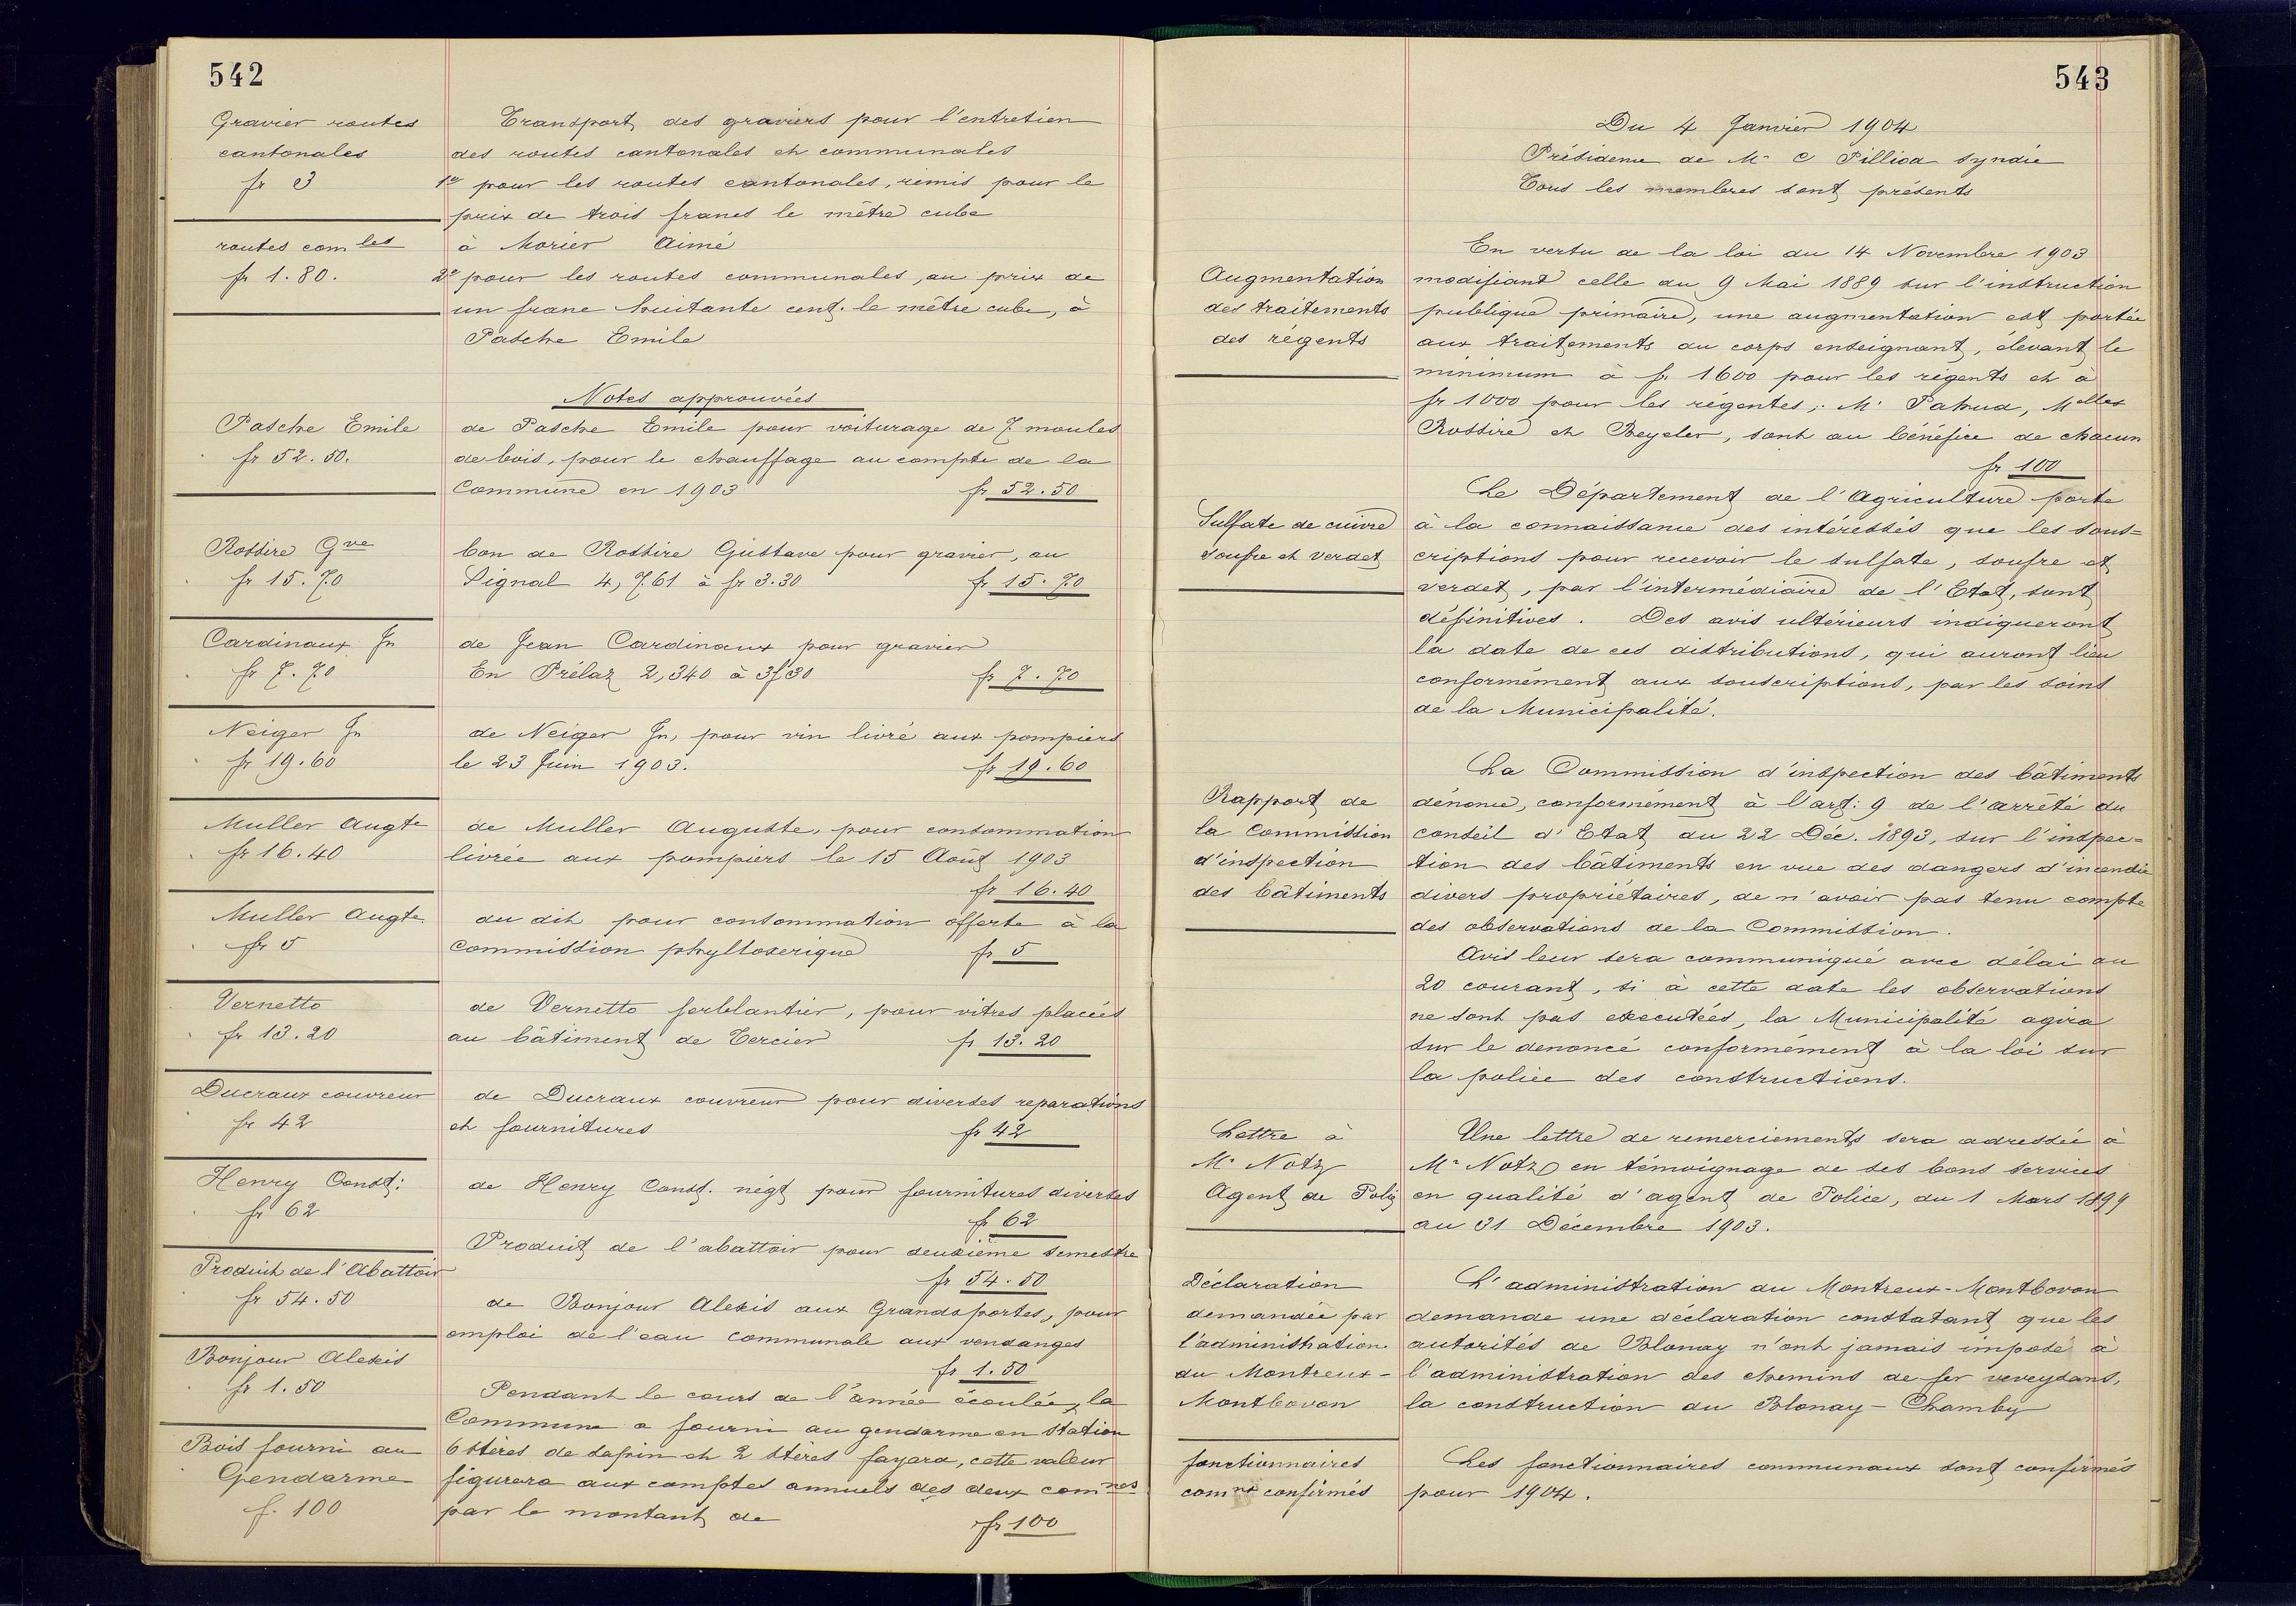 542
Gravier routes
cantonales
fr 3
routes comles
fr 1.80.
Pasche Emile
fr 52.50.
Rossire Gve
fr 15.70
Cardinaux Jn
fr 7.70
Neiger Jn
fr 19.60
Muller Augte
fr 16.40
Muller Augte
fr 5
Vernetto
fr 13.20
Ducraux couvreur
fr 42
Henry Const:
fr 62
Produit de l'Abattoir
fr 54.50
Bonjour Alexis
fr 1.50
Bois fourni au
Gendarme
f. 100
Transport des graviers pour l'entretien
des routes cantonales et communales
1º pour les routes cantonales, remis pour le
prix de trois francs le mètre cube
à Morier Aimé
2º pour les routes communales, au prix de
un franc huitante cent. le mètre cube, à
Pasche Emile
Notes approuvées
de Pasche Emile pour voiturage de 7 moules
de bois, pour le chauffage au compte de la
Commune en 1903 fr 52.50
bon de Rossire Gustave pour gravier, au
Signal 4,761 à fr 3.30 fr 15.70
de Jean Cardinaux pour gravier
En Prélaz 2,340 à 3f30 fr 7.70
de Neiger Jn, pour vin livré aux pompiers
le 23 Juin 1903. fr 19.60
de Muller Auguste, pour consommation
livrée aux pompiers le 15 Août 1903
fr 16.40
du dit pour consommation offerte à la
Commission phylloxerique fr 5
de Vernetto ferblantier, pour vitres placées
au bâtiment de Tercier fr 13.20
de Ducraux couvreur pour diverses reparations
et fournitures fr 42
de Henry Const. négt pour fournitures diverses
fr 62
Produit de l'abattoir pour deuxième semestre
fr 54.50
de Bonjour Alexis aux Grandsportes, pour
emploi de l'eau communale aux vendanges
fr 1.50
Pendant le cours de l'année écoulée, la
Commune a fourni au gendarme en station
6 stères de sapin et 2 stères fayard, cette valeur
figurera aux comptes annuels des deux comnes
par le montant de fr 100
543
Du 4 Janvier 1904
Présidence de Mr C Pilliod syndic
Tous les membres sont présents
Augmentation
des traitements
des régents
En vertu de la loi du 14 Novembre 1903
modifiant celle du 9 Mai 1889 sur l'instruction
publique primaire, une augmentation est portée
aux traitements du corps enseignant, élevant le
minimum à fr. 1600 pour les régents et à
fr 1000 pour les régentes; Mr Pahud, Melles
Rossire et Beyeler, sont au bénéfice de chacun
fr 100
Sulfate de cuivre
soufre et verdet
Le Département de l'Agriculture porte
à la connaissance des intéressés que les sous=
criptions pour recevoir le sulfate, soufre et
verdet, par l'intermédiaire de l'Etat, sont
définitives. Des avis ultérieurs indiqueront
la date de ces distributions, qui auront lieu
conformément aux souscriptions, par les soins
de la Municipalité.
Rapport de
la Commission
d'inspection
des bâtiments
La Commission d'inspection des bâtiments
dénonce, conformément à l'art: 9 de l'arrêté du
conseil d'Etat du 22 Déc. 1893, sur l'inspec=
tion des bâtiments en vue des dangers d'incendie
divers propriétaires, de n'avoir pas tenu compte
des observations de la Commission.
Avis leur sera communiqué avec délai au
20 courant, si à cette date les observations
ne sont pas executées, la Municipalité agira
sur le denoncé conformément à la loi sur
la police des constructions.
Lettre à
Mr Notz
Agent de Police
Une lettre de remerciements sera adressée à
Mr Notz en témoignage de ses bons services
en qualité d'agent de Police, du 1 Mars 1899
au 31 Décembre 1903.
Déclaration
demandée par
l'administration
du Montreux-
Montbovon
L'administration du Montreux-Montbovon
demande une déclaration constatant que les
autorités de Blonay n'ont jamais imposé à
l'administration des chemins de fer veveysans,
la construction du Blonay-Chamby
fonctionnaires
comnx confirmés
Les fonctionnaires communaux sont confirmés
pour 1904.